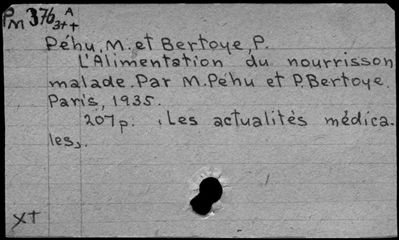 PM 376 A
3++
Péhu, M. et Bertoye, P.
L'Alimentation du nourrisson
malade. Par M. Péhu et P. Bertoye.
Paris, 1935.
207p. (Les actualités médica-
les).
X+